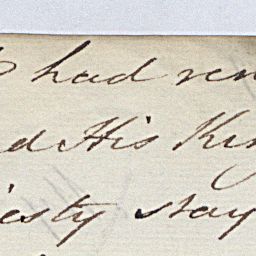 had ren
d His Kin
esty stay